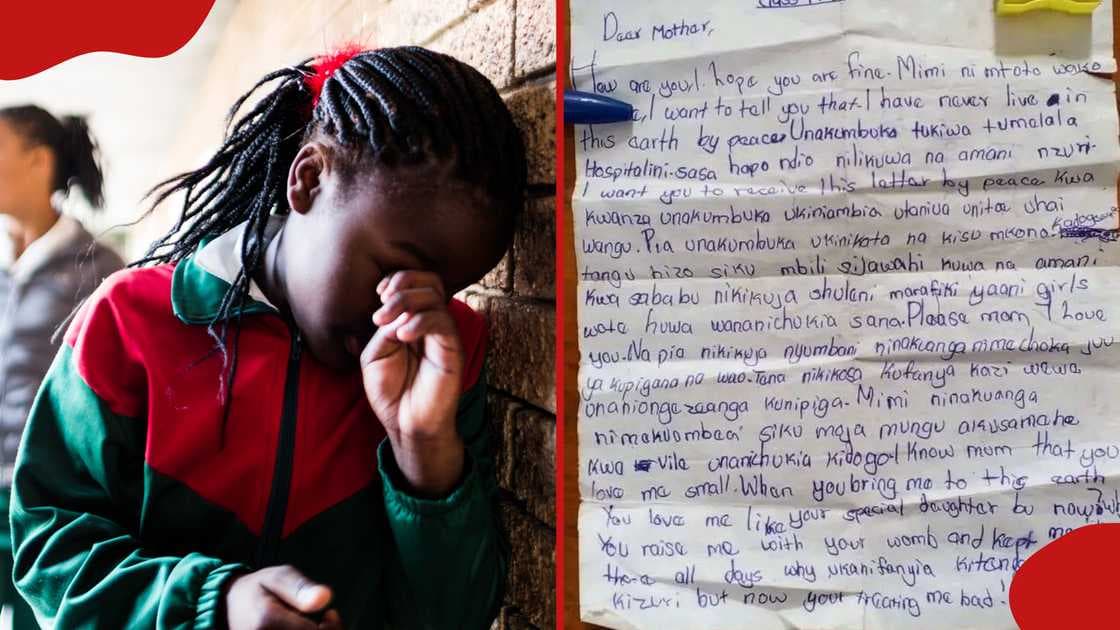 Dear Mother,
How are you I hope you are fine. Mimi ni mtoto wako
I want to tell you that I have never live in
this earth by peace. Unakumbuka tukiwa tumelala
Hospitalini sasa hapo ndio nilikuwa na amani nzuri.
I want you to receive this letter by peace. Kwa
kwanza unakumbuka ukiniambia utaniua unitoe uhai
wangu. Pia unakumbuka ukinikata na kisu mkono. Kidogo
tangu hizo siku mbili sijawahi kuwa na amani
kwa sababu nikikuja shuleni marafiki yaani girls
wote huwa wananichukia sana. Please mom I love
you. Na pia nikikuja nyumbani ninakuanga nimechoka juu
ya kupigana na wao. Tena nikikosa kufanya kazi wewe
unaniongezeanga kunipiga. Mimi ninakuanga
nimekuombea siku moja mungu akusamehe
kwa vile unanichukia kidogo. I know mum that you
love me small. When you bring me to this earth
You love me like your special daughter bu now
You raise me with your womb and kept me
there all days why ukanifanyia kitendo
kizuri but now your treating me bad!